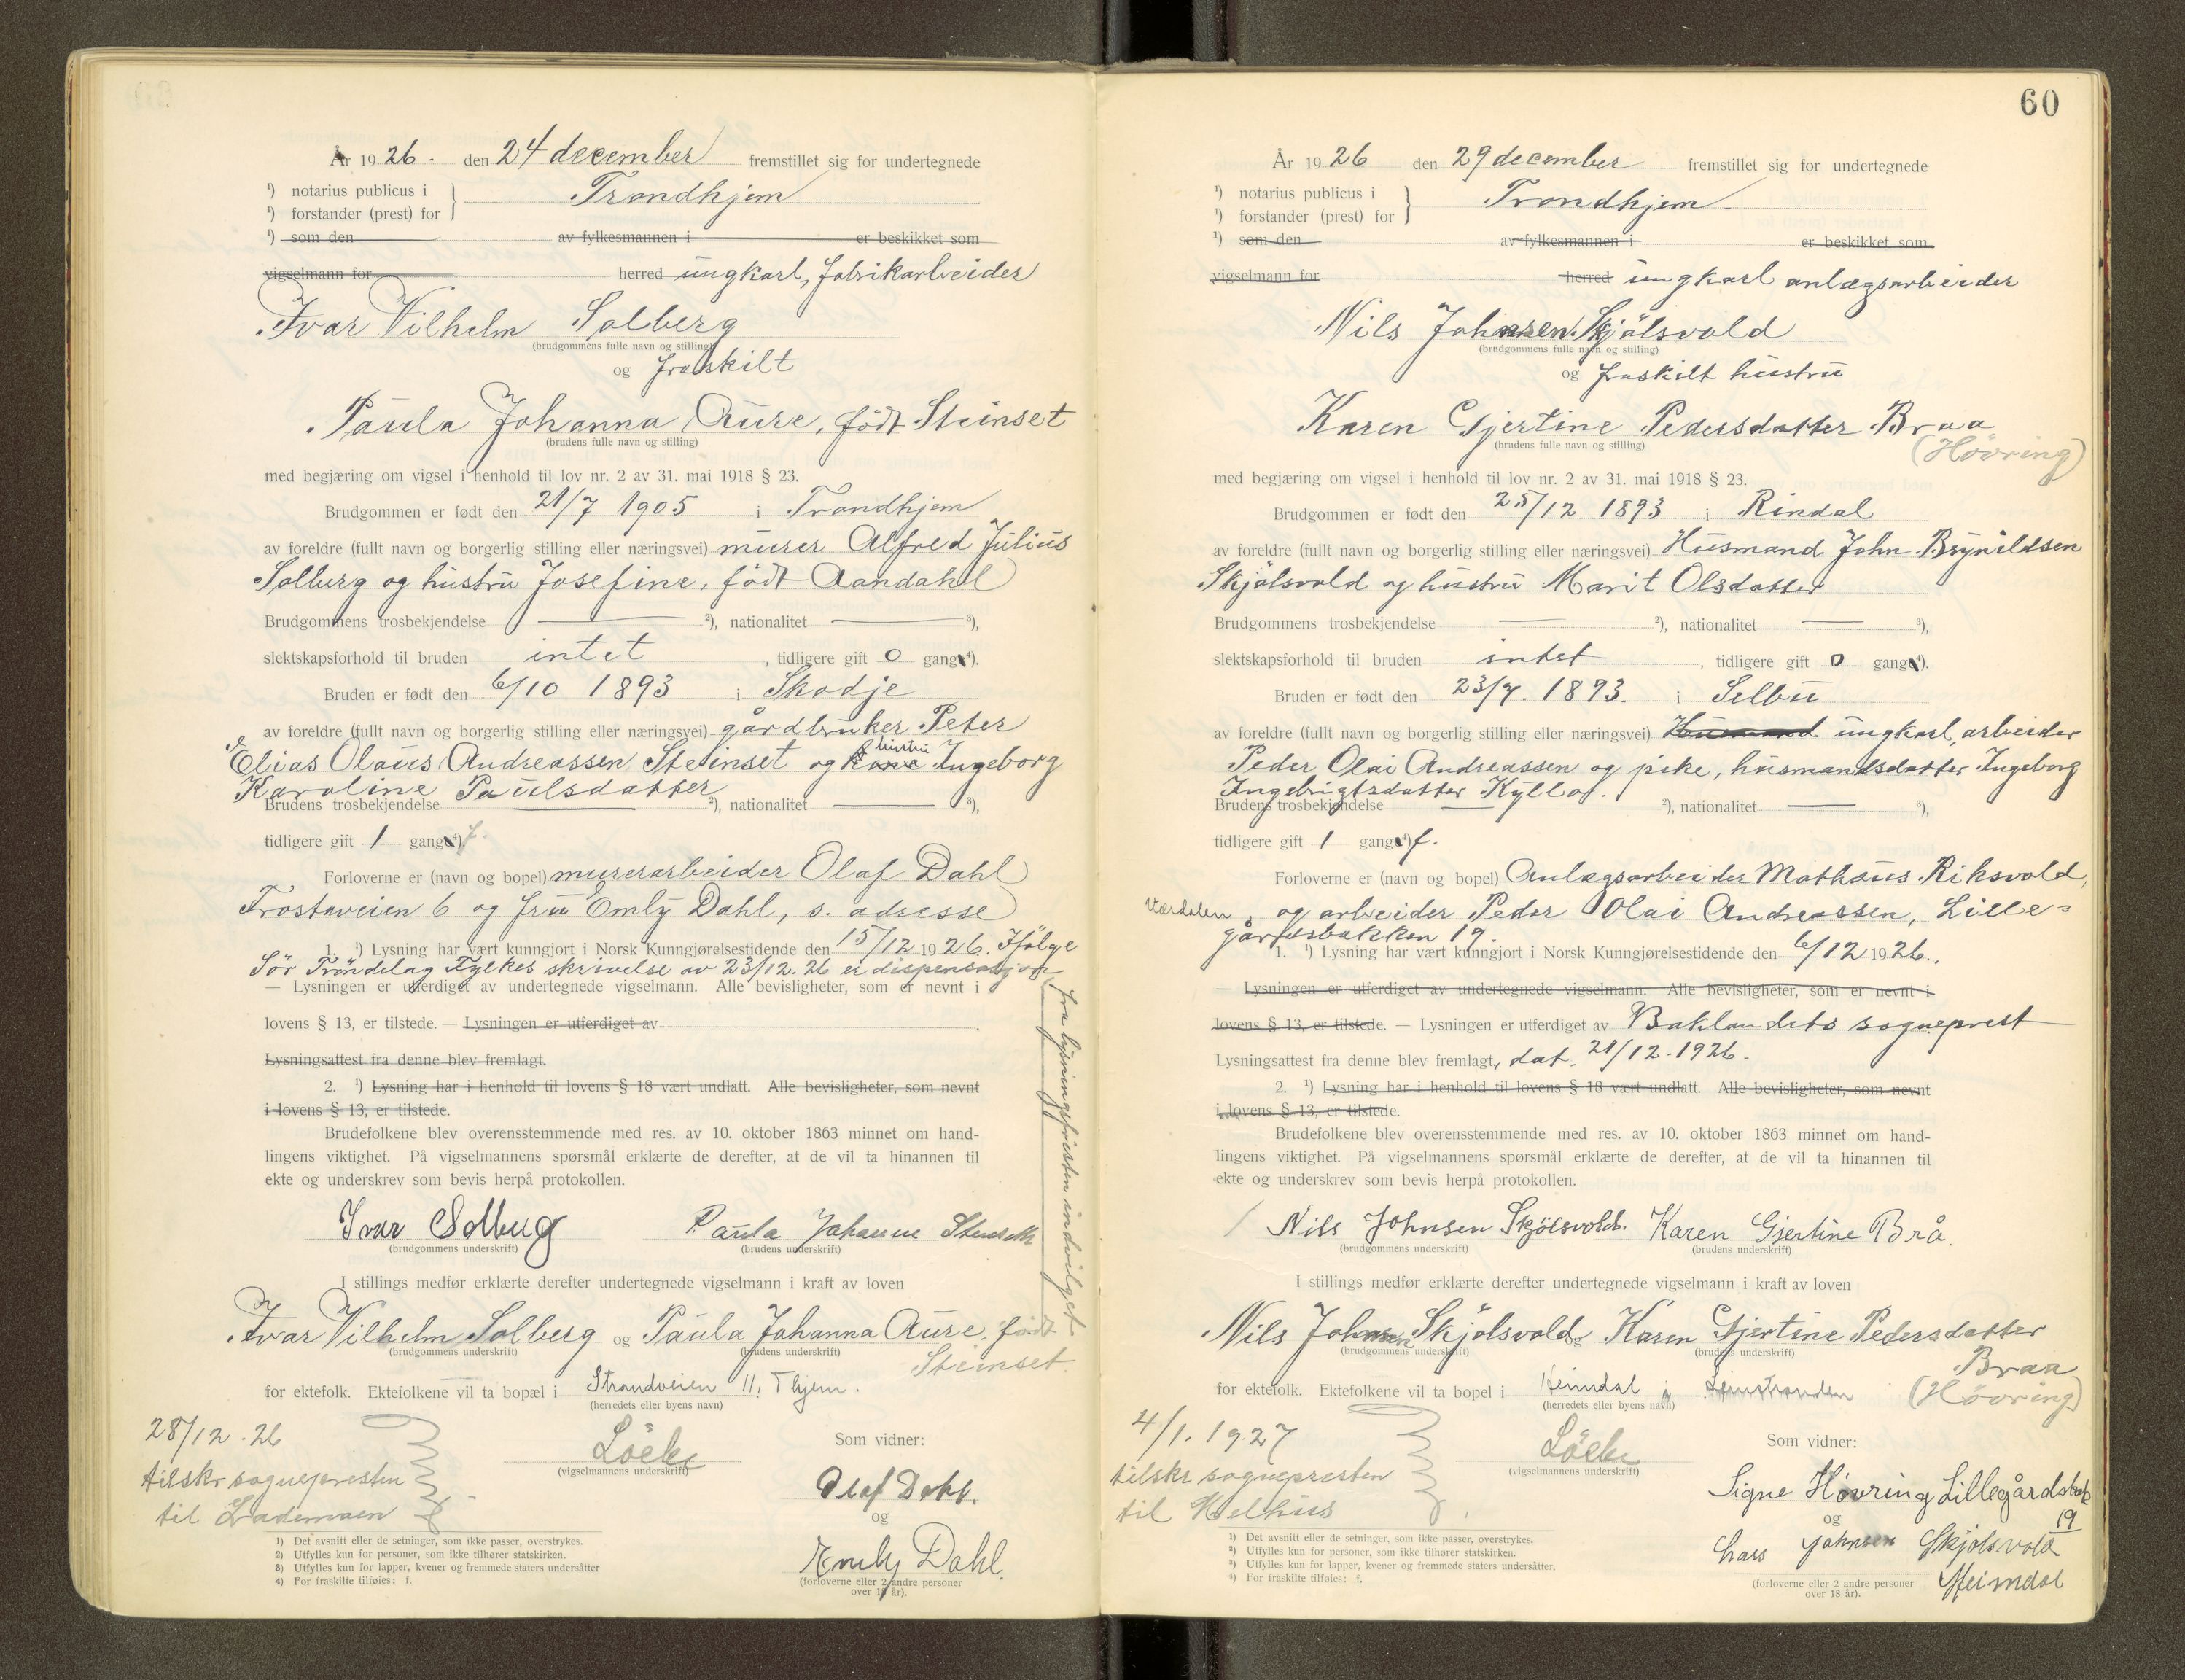 År 1926. den 24 december fremstillet sig for undertegnede
¹) notarius publicus i
¹) forstander (prest) for } Trondhjem
¹) som den av fylkesmannen i er beskikket som
vigselmann for herred ungkarl, fabrikarbeider
Ivar Vilhelm Solberg
(brudgommens fulle navn og stilling)
og fraskilt
Paula Johanna Aure, født Steinset
(brudens fulle navn og stilling)
med begjæring om vigsel i henhold til lov nr. 2 av 31. mai 1918 § 23.
Brudgommen er født den 21/7 1905 i Trondhjem
av foreldre (fullt navn og borgerlig stilling eller næringsvei) murer Alfred Julius
Solberg og hustru Josefine, født Aandahl
Brudgommens trosbekjendelse — ²), nationalitet — ³),
slektskapsforhold til bruden intet, tidligere gift 0 gang ⁴).
Bruden er født den 6/10 1893 i Skodje
av foreldre (fullt navn og borgerlig stilling eller næringsvei) gårdbruker Peter
Elias Olaus Andreassen Steinset og kone hustru Ingeborg
Karoline Paulsdatter
Brudens trosbekjendelse — ²), nationalitet — ³),
tidligere gift 1 gang ⁴) f.
Forloverne er (navn og bopel) murerarbeider Olaf Dahl
Frostaveien 6 og fru Emly Dahl, s. adresse
1. ¹) Lysning har vært kunngjort i Norsk Kunngjørelsestidende den 15/12 1926. Ifølge
Sør Trøndelag Fylkes skrivelse av 23/12.26 er dispensasjon
fra lysningsfristen indvilget
— Lysningen er utferdiget av undertegnede vigselmann. Alle bevisligheter, som er nevnt i
lovens § 13, er tilstede. — Lysningen er utferdiget av
Lysningsattest fra denne blev fremlagt.
2. ¹) Lysning har i henhold til lovens § 18 vært undlatt. Alle bevisligheter, som nevnt
i lovens § 13, er tilstede.
Brudefolkene blev overensstemmende med res. av 10. oktober 1863 minnet om hand-
lingens viktighet. På vigselmannens spørsmål erklærte de derefter, at de vil ta hinannen til
ekte og underskrev som bevis herpå protokollen.
Ivar Solberg Paula Johanne
(brudgommens underskrift) (brudens underskrift)
I stillings medfør erklærte derefter undertegnede vigselmann i kraft av loven
Ivar Vilhelm Solberg og Paula Johanna Aure, født
Steinset
(brudgommens underskrift) (brudens underskrift)
for ektefolk. Ektefolkene vil ta bopæl i Strandveien 11, Thjem.
(herredets eller byens navn)
28/12.26
tilskr sognepresten
til Lademoen
(vigselmannens underskrift)
Som vidner:
Olaf Dahl.
og
Emly Dahl.
(forloverne eller 2 andre personer
over 18 år).
1) Det avsnitt eller de setninger, som ikke passer, overstrykes.
2) Utfylles kun for personer, som ikke tilhører statskirken.
3) Utfylles kun for lapper, kvener og fremmede staters undersåtter
4) For fraskilte tilføies: f.
60
År 1926 den 29 december fremstillet sig for undertegnede
¹) notarius publicus i
¹) forstander (prest) for } Trondhjem
¹) som den av fylkesmannen i er beskikket som
vigselmann for herred ungkarl anlægsarbeider
Nils Johnsen Skjølsvold
(brudgommens fulle navn og stilling)
og fraskilt hustru
Karen Gjertine Pedersdatter Braa
(Høvring)
(brudens fulle navn og stilling)
med begjæring om vigsel i henhold til lov nr. 2 av 31. mai 1918 § 23.
Brudgommen er født den 25/12 1893 i Rindal
av foreldre (fullt navn og borgerlig stilling eller næringsvei) Husmand John Brynildsen
Skjølsvold og hustru Marit Olsdatter
Brudgommens trosbekjendelse — ²), nationalitet — ³),
slektskapsforhold til bruden intet, tidligere gift 0 gang ⁴).
Bruden er født den 23/7. 1893. i Selbu
av foreldre (fullt navn og borgerlig stilling eller næringsvei) Husmand ungkarl, arbeider
Peder Olai Andreassen og pike, husmandsdatter Ingeborg
Ingebrigtsdatter Kyllo.
Brudens trosbekjendelse — ²), nationalitet — ³),
tidligere gift 1 gang ⁴) f.
Forloverne er (navn og bopel) Anlægsarbeider Mathæus Riksvold,
Værdalen, og arbeider Peder Olai Andreassen, Lille-
gårdsbakken 19.
1. ¹) Lysning har vært kunngjort i Norsk Kunngjørelsestidende den 6/12 1926.
— Lysningen er utferdiget av undertegnede vigselmann. Alle bevisligheter, som er nevnt i
lovens § 13, er tilstede. — Lysningen er utferdiget av Baklandets sogneprest
Lysningsattest fra denne blev fremlagt, dat. 21/12.1926.
2. ¹) Lysning har i henhold til lovens § 18 vært undlatt. Alle bevisligheter, som nevnt
i lovens § 13, er tilstede.
Brudefolkene blev overensstemmende med res. av 10. oktober 1863 minnet om hand-
lingens viktighet. På vigselmannens spørsmål erklærte de derefter, at de vil ta hinannen til
ekte og underskrev som bevis herpå protokollen.
Nils Johnsen Skjølsvold. Karen Gjertine Brå.
(brudgommens underskrift) (brudens underskrift)
I stillings medfør erklærte derefter undertegnede vigselmann i kraft av loven
Nils Johnsen Skjølsvold og Karen Gjertine Pedersdatter
Braa
(Høvring)
(brudgommens underskrift) (brudens underskrift)
for ektefolk. Ektefolkene vil ta bopel i Heimdal i Leinstranden
(herredets eller byens navn)
4/1. 1927
tilskr sognepresten
til Melhus
(vigselmannens underskrift)
Som vidner:
Signe Høvring Lillegårdsbak
19
og
Lars Johnsen Skjølsvold
Heimdal
(forloverne eller 2 andre personer
over 18 år).
¹) Det avsnitt eller de setninger, som ikke passer, overstrykes.
²) Utfylles kun for personer, som ikke tilhører statskirken.
³) Utfylles kun for lapper, kvener og fremmede staters undersåtter.
⁴) For fraskilte tilføies: f.